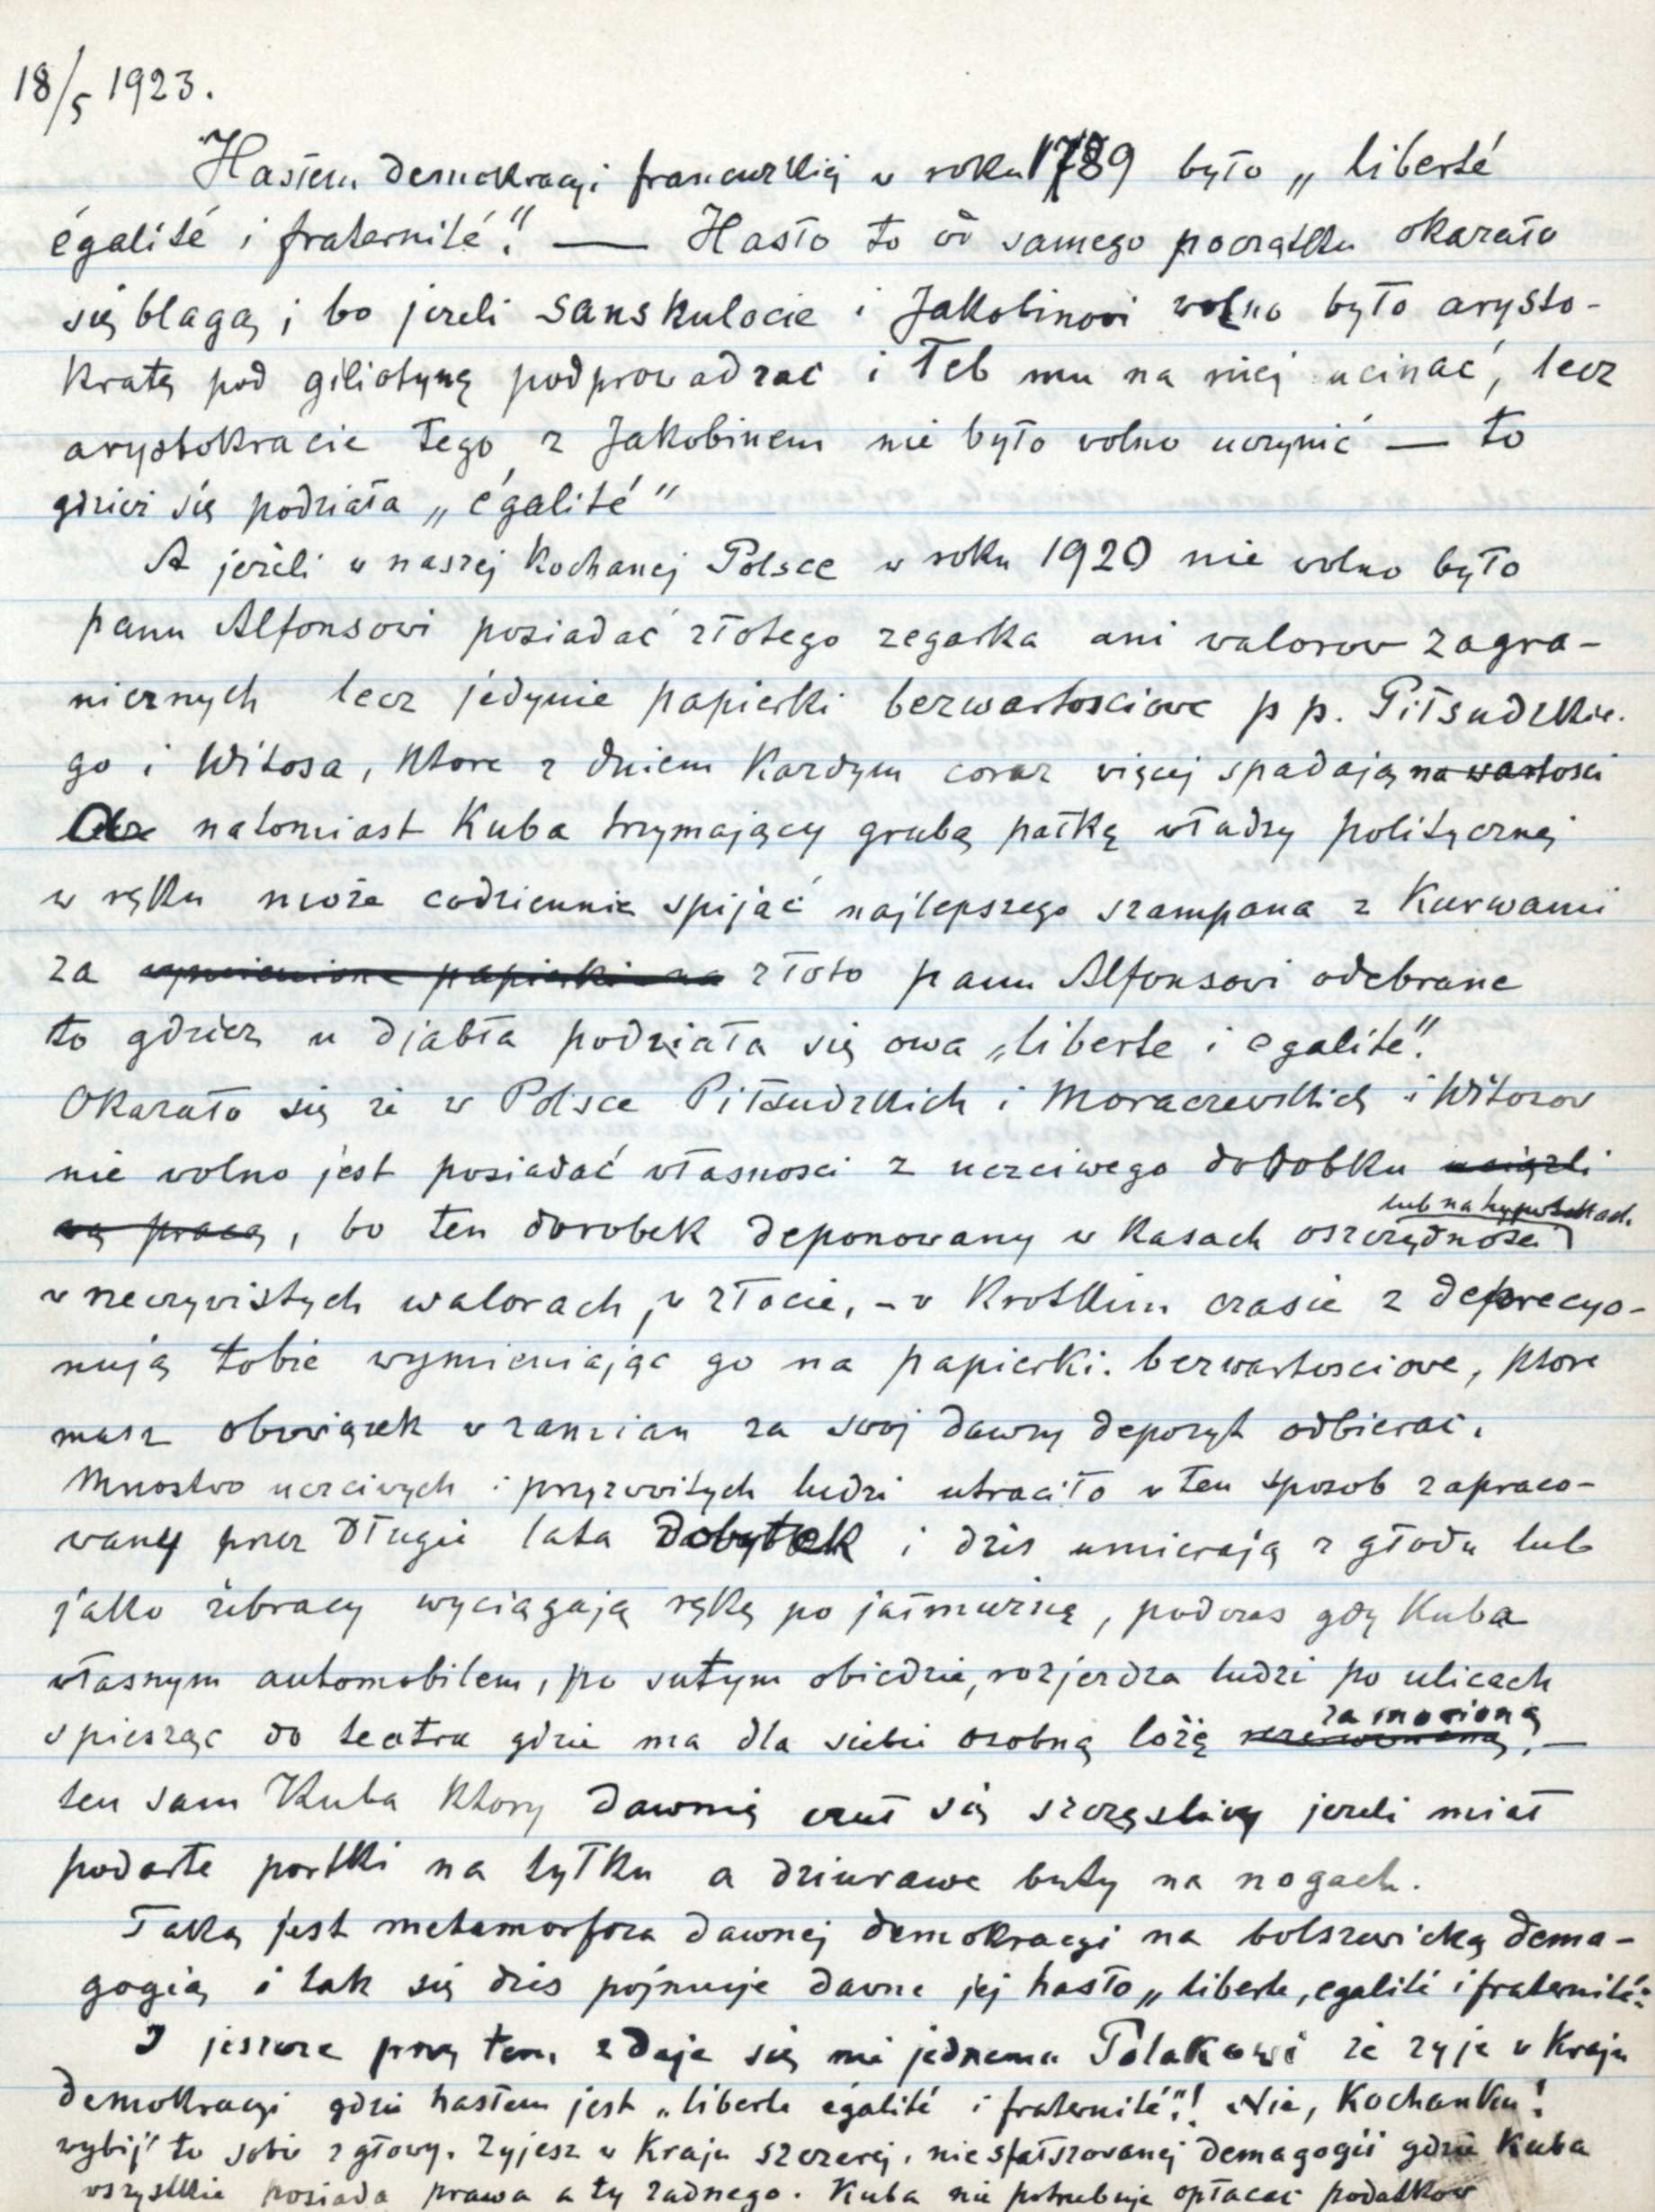 18/5 1923.
Hasłem demokracyi francuzkiej w roku 1789 było „liberté
égalité i fraternité". — Hasło to od samego początku okazało
się blagą; bo jezeli sanskulocie i Jakobinowi wolno było arysto-
kratę pod giliotynę podprowadzac i łeb mu na niej ucinać, lecz
arystokracie tego z Jakobinem nie było wolno uczynić — to
gdzież się podziała „égalité"
A jeżeli w naszej kochanej Polsce w roku 1920 nie wolno było
panu Alfonsowi posiadać złotego zegarka ani walorow zagra-
nicznych lecz jedynie papierki bezwartosciowe p p. Piłsudzkie-
go i Witosa, ktore z dniem kazdym coraz więcej spadają na wartosci
natomiast Kuba trzymający grubą pałkę władzy politycznej
w ręku może codziennie spijać najlepszego szampana z kurwami
za wymienione papierki na złoto panu Alfonsowi odebrane
to gdziez u djabła podziała się owa „liberte i egalite".
Okazało się ze w Polsce Piłsudzkich i Moraczewskich i Witosow
nie wolno jest posiadać własnosci z uczciwego dorobku uciązli
wą pracą, bo ten dorobek deponowany w kasach oszczędnosci lub na hypotekach
w rzeczywistych walorach, w złocie, - w krotkim czasie z deprecyo-
nują tobie wymieniając go na papierki bezwartosciowe, ktore
masz obowiązek w zamian za swoj dawny depozyt odbierac.
Mnostwo uczciwych i przyzwoitych ludzi utraciło w ten sposob zapraco-
wany przez długie lata dobytek i dzis umierają z głodu lub
jako żebracy wyciągają rękę po jałmużnę, podczas gdy Kuba
własnym automobilem, po sutym obiedzie, rozjezdza ludzi po ulicach
spiesząc do teatru gdzie ma dla siebie osobną lożę rezerwowaną zamowioną! —
ten sam Kuba ktory dawniej czuł się szczęsliwy jezeli miał
podarte portki na tyłku a dziurawe buty na nogach.
Taką jest metamorfoza dawnej demokracyi na bolszewicką dema-
gogią i tak się dzis pojmuje dawne jej hasło „liberte, egalité i fraternité"
I jeszcze przy tem zdaje się nie jednemu Polakowi ze zyje w kraju
demokracyi gdzie hasłem jest „liberte égalité i fraternité"! Nie, Kochanku!
wybij to sobie z głowy. Zyjesz w kraju szczerej, nie sfałszowanej demagogii gdzie Kuba
wszystkie posiada prawa a ty zadnego. Kuba nie potrzebuje opłacać podatkow